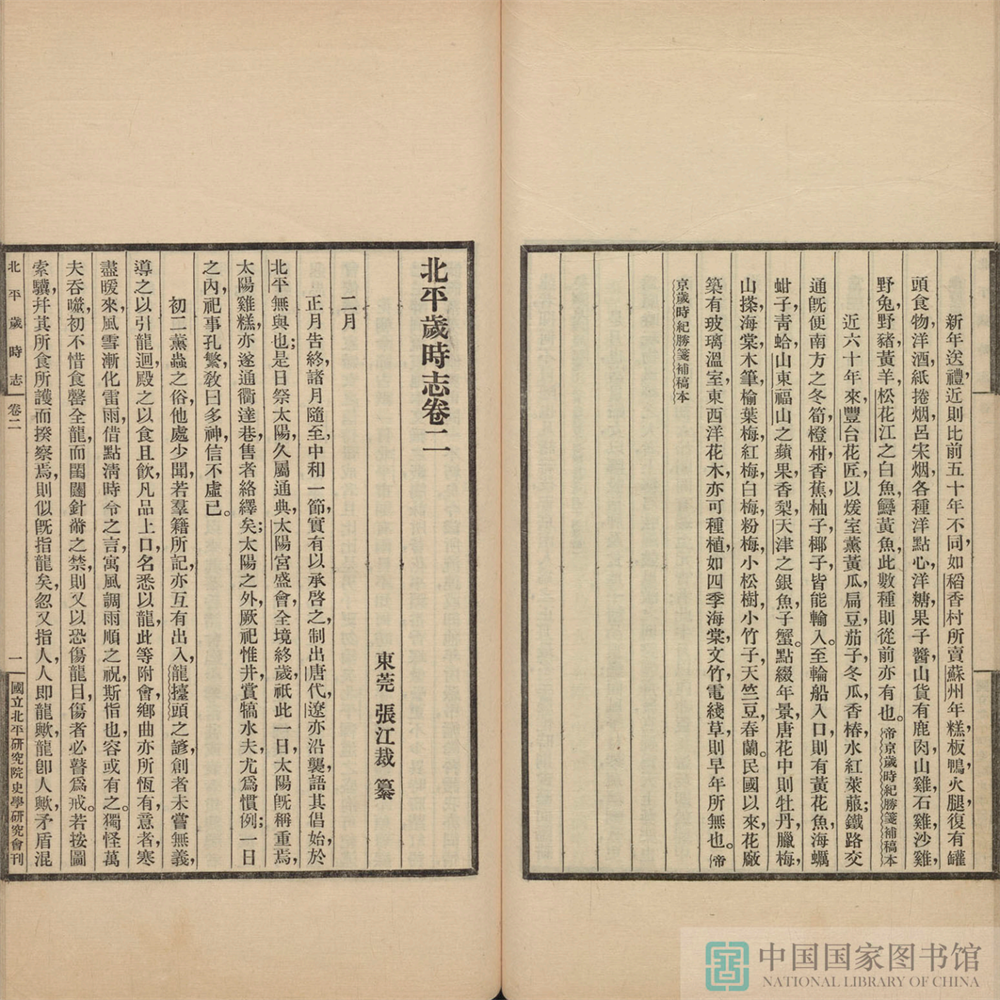 新年送禮,近則比前五十年不同,如稻香村所賣蘇州年糕,板鴨,火腿,復有罐
頭食物,洋酒,紙捲烟,呂宋烟,各種洋點心,洋糖,果子醬,山貨有鹿肉,山雞,石雞,沙雞,
野兔,野豬,黃羊,松花江之白魚,鱘黃魚,此數種則從前亦有也。帝京歲時紀勝箋補稿本
近六十年來,豐台花匠以煖室薰黃瓜,扁豆,茄子,冬瓜,香椿,水紅萊菔;鐵路交
通旣便,南方之冬筍,橙,柑,香蕉,柚子,椰子,皆能輸入。至輪船入口,則有黃花魚,海蠣,
蚶子,青蛤,山東福山之蘋果,香梨,天津之銀魚,子蟹。點綴年景,唐花中則牡丹,臘梅,
山搽,海棠,木筆,榆葉梅,紅梅,白梅,粉梅,小松樹,小竹子,天竺豆,春蘭。民國以來,花廠
築有玻璃溫室,東西洋花木,亦可種植,如四季海棠,文竹,電綫草,則早年所無也。帝
京歲時紀勝箋補稿本
北平歲時志卷二
東莞 張江裁 纂
二月
正月告終,諸月隨至,中和一節,實有以承啓之,制出唐代,遼亦沿襲,語其倡始,於
北平無與也;是日祭太陽,久屬通典,太陽宮盛會,全境終歲祇此一日,太陽旣稱重焉,
太陽雞糕,亦遂通衢達巷,售者絡繹矣;太陽之外,厥祀惟井,賞犒水夫,尤爲慣例;一日
之內,祀事孔繁,敎曰多神,信不虛已。
初二薰蟲之俗,他處少聞,若羣籍所記,亦互有出入,龍擡頭之諺,創者未嘗無義,
導之以引龍迴,殿之以食且飲,凡品上口,名悉以龍,此等附會,鄉曲亦所恆有,意者寒
盡暖來,風雪漸化雷雨,借點淸時令之言,寓風調雨順之祝,斯指也,容或有之。獨怪萬
夫吞噬,初不惜食罄全龍,而閨闥針黹之禁,則又以恐傷龍目,傷者必瞽爲戒。若按圖
索驥,幷其所食所護而揆察焉,則似旣指龍矣,忽又指人,人即龍歟,龍即人歟,矛盾混
北平歲時志
卷二
一
國立北平研究院史學研究會刊
中国国家图书馆
NATIONAL LIBRARY OF CHINA